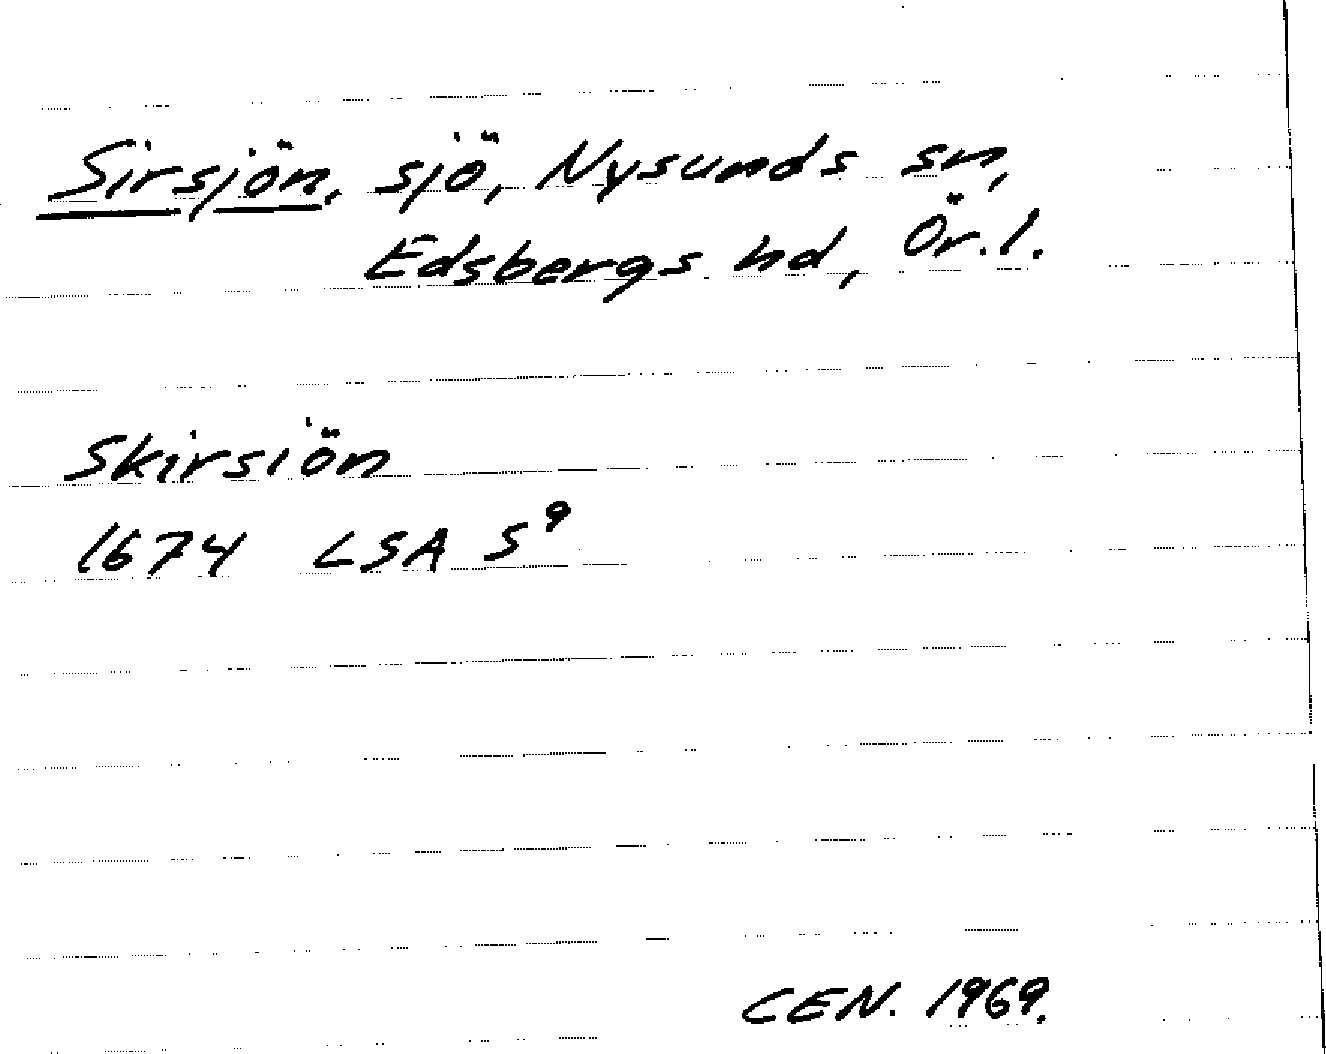 Sirsjön, sjö, Nysunds sn,
Edsbergs hd, Ör. l.
Skirsiön
1674 LSA S⁹
CEN. 1969.